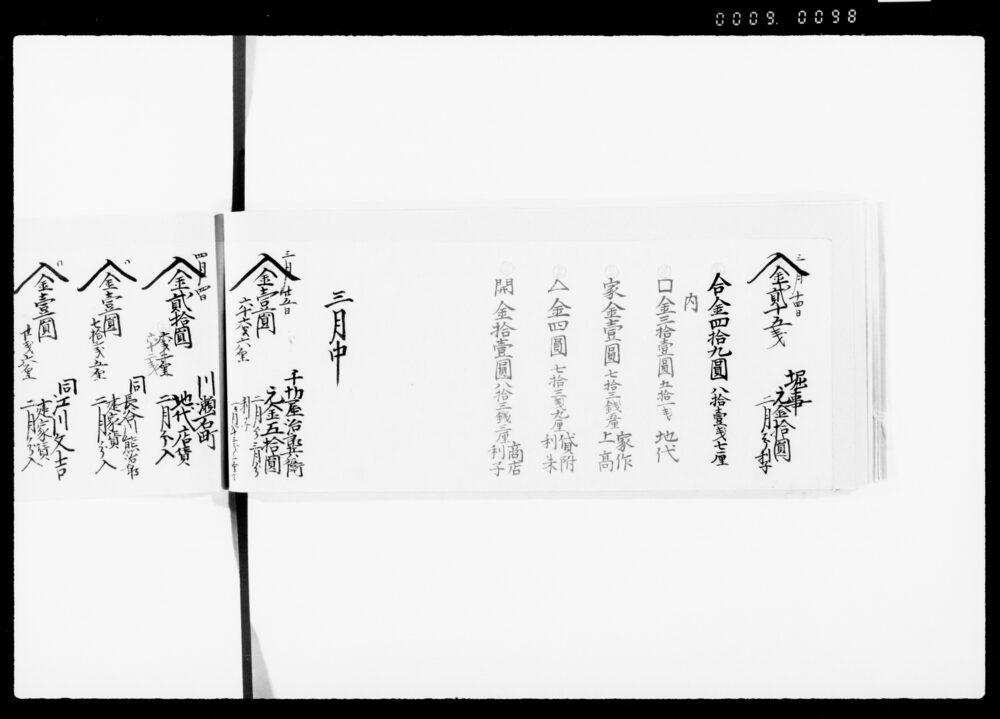 0009. 0098
三月十四日
金貳十五戋
堀事
元金拾圓
二月分利子
合金四拾九圓 八拾壹戋七厘
内
口金三拾壹圓 五拾一戋 地代
家金壹圓 七拾三銭
家作
上高
△金四圓 七拾三戋九厘
貸附
利朱
開金拾壹圓 八拾三銭二厘
商店
利子
三月中
三月廿五日
金壹圓
六十六戋六厘
治兵衛
元金五拾圓
二月分三月分
四月四日
金貳拾圓
川瀬石町
地代店賃
二月分入
金壹圓
七拾五戋五厘
同長谷熊治郎
二月分入
金壹圓
同江川久吉
二月分入